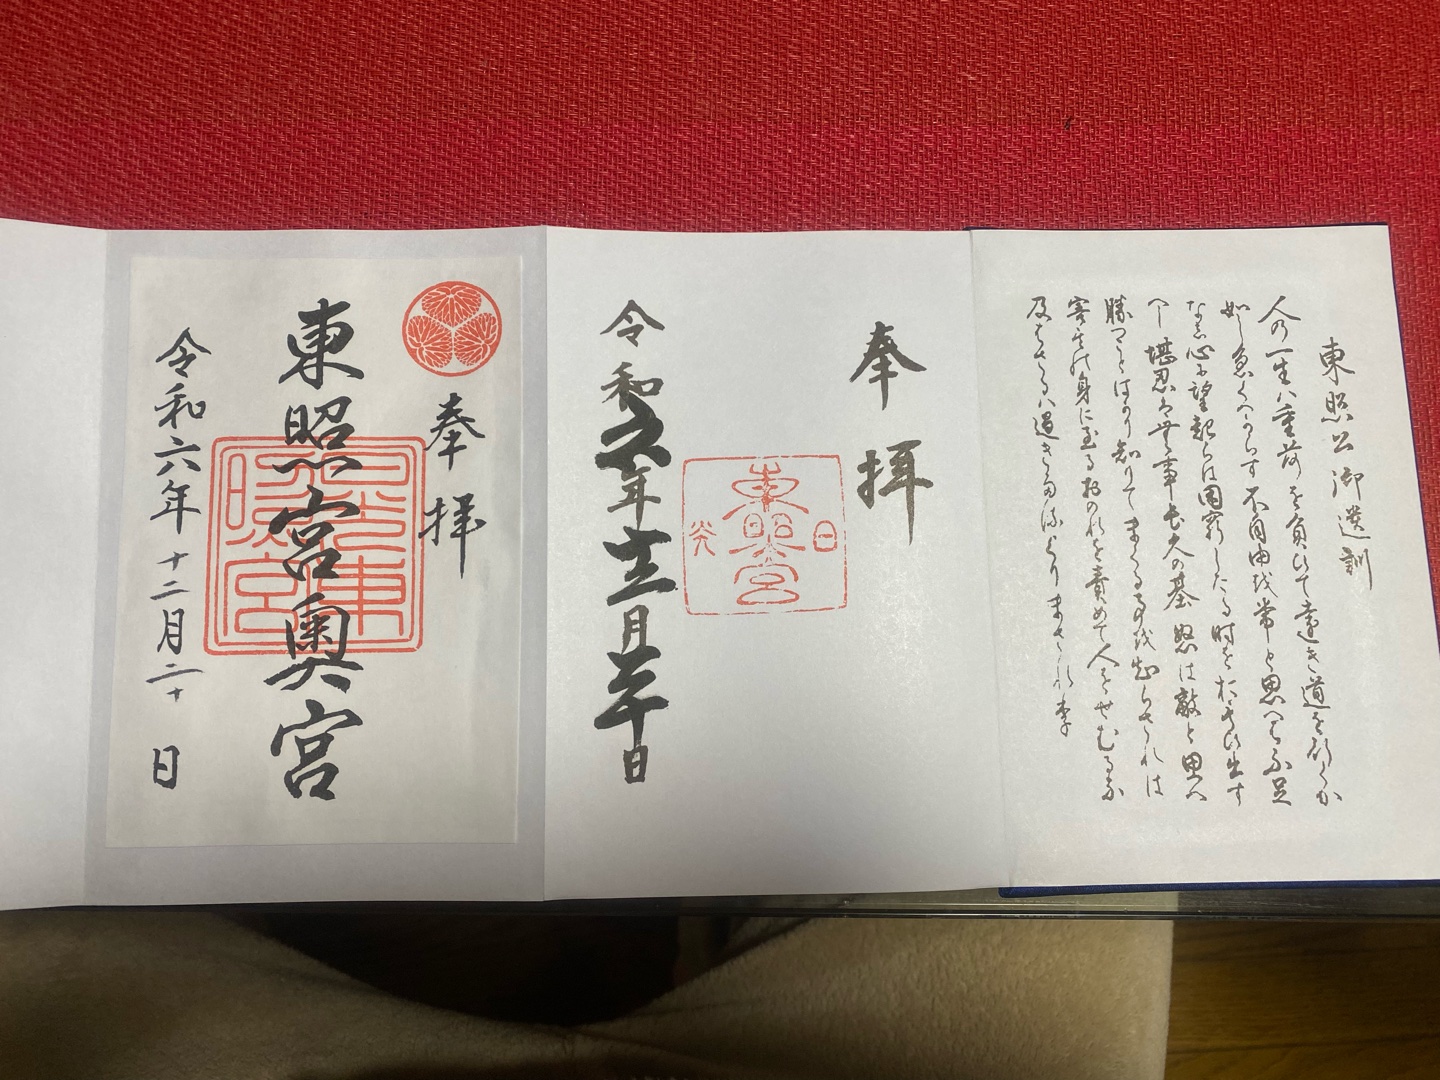 東照公御遺訓
人の一生ハ重荷を負ひて遠き道を行くか
如し急くへからす不自由を常と思へは不足
なし心に望起らは困窮したる時を思ひ出す
へし堪忍は無事長久の基怒は敵と思へ
勝つことはかり知りてまくる事を知らされは
害其の身に至るおのれを責めて人をせむるな
及はさるハ過きたるよりまされり
奉拝
日
東照宮
光
令和六年十二月二十日
奉拝
東照宮奥宮
日光東
照宮
令和六年十二月二十日